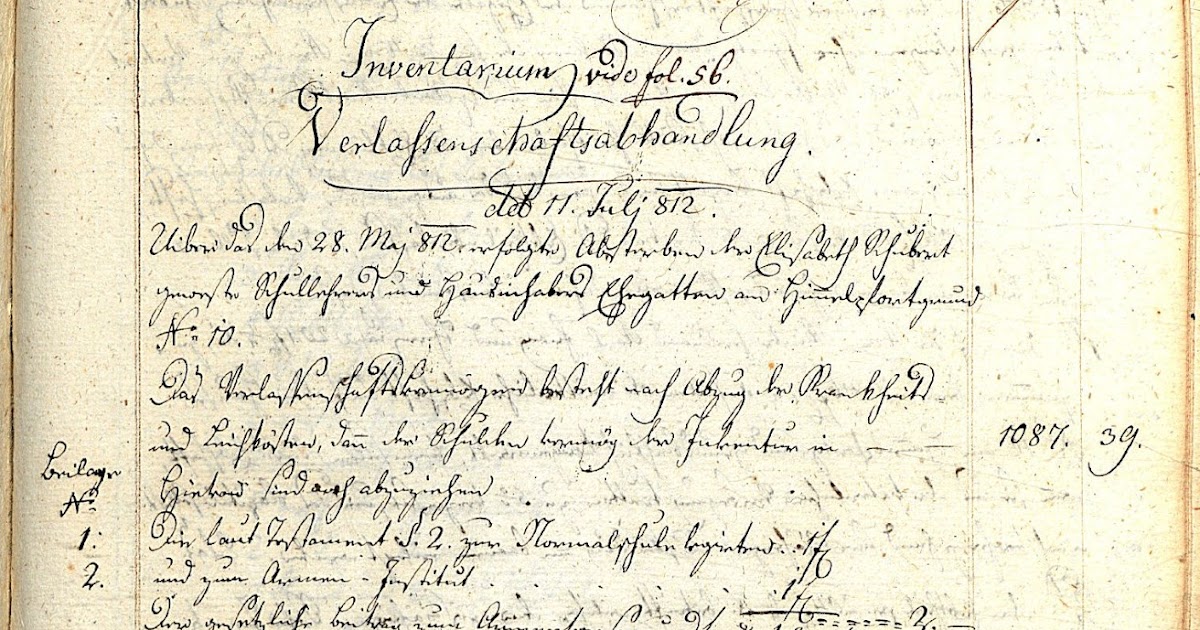 Inventarium vide fol. 56.
Verlassenschaftsabhandlung.
ddt 11. Julj 812.
Uiber das den 28. Maj 812 erfolgte Absterben der Elisabeth Schubert
geweste Schullehrers und Hausinhabers Ehegatten am Himmelpfortgrund
No. 10.
Das Verlassenschaftsvermögen besteht nach Abzug der Krankheits
und Leichkösten, dann der Schulden vermög der Inventur in — — 1087. 39.
Beilage
No.
Hievon sind noch abzuziehen
1. Die laut Testament §. 2. zur Normalschule legirten . 1 f
2. und zum Armen-Institut . . 1 f
Der gesetzliche Beitrag zum 2.